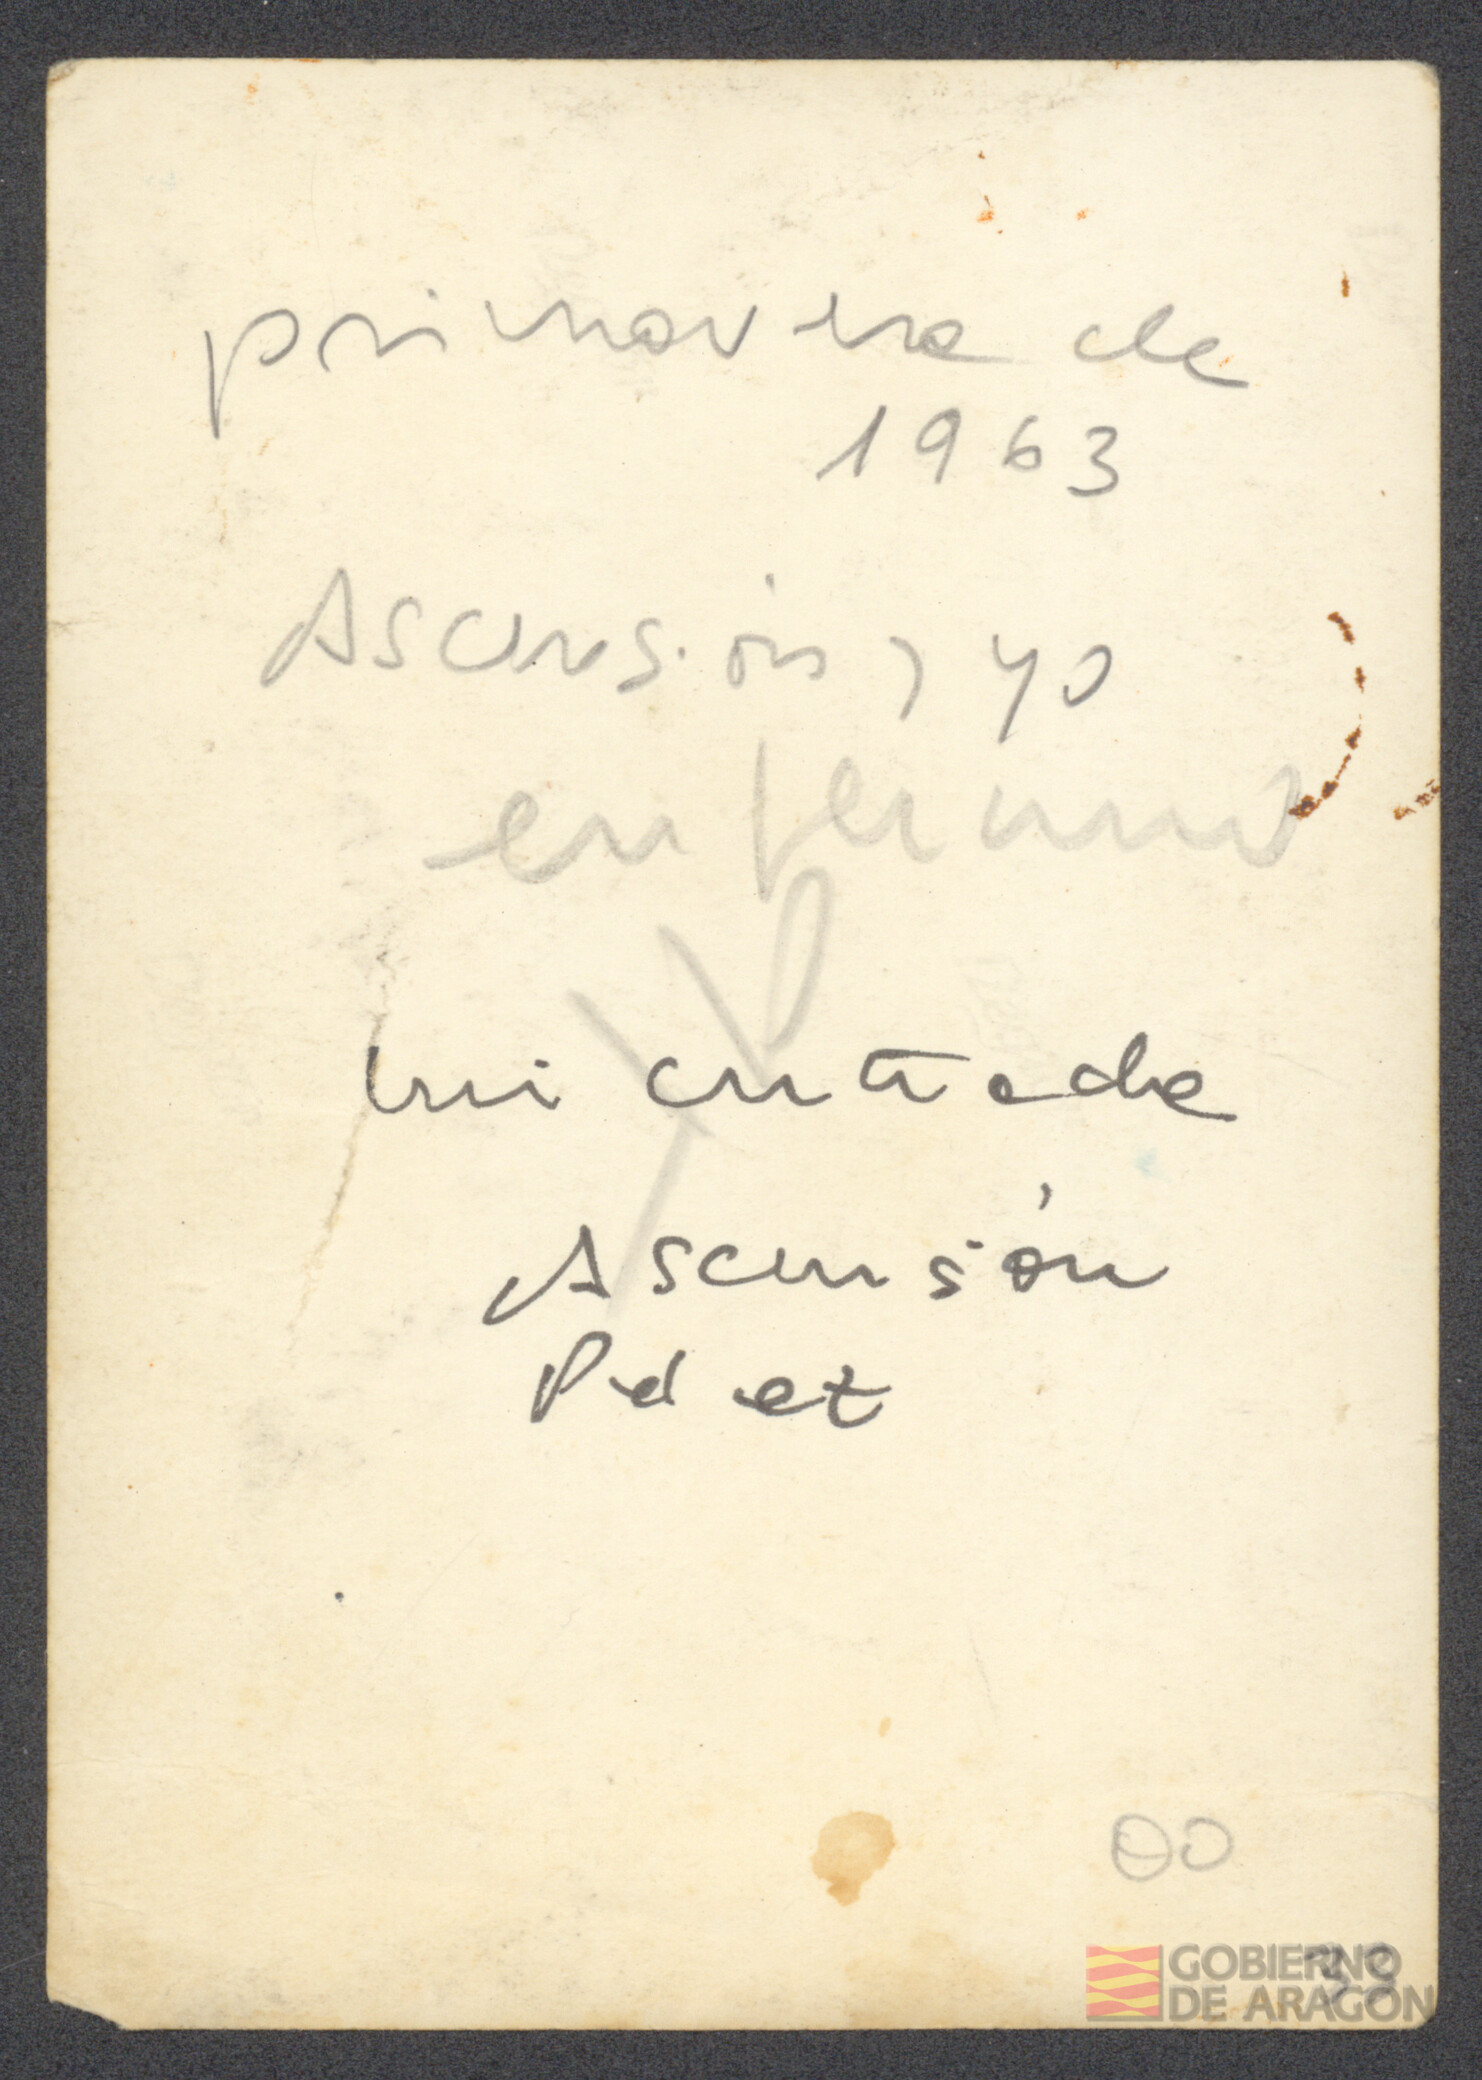 primavera de
1963
Ascensión, yo
enfermo
mi cuñada
Ascensión
GOBIERNO
DE ARAGÓN